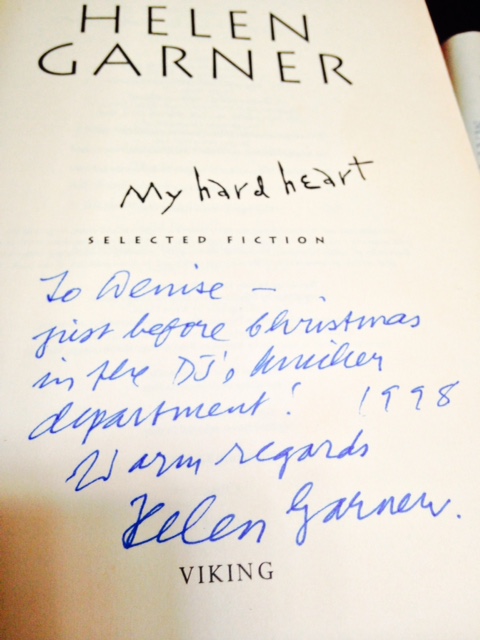 HELEN
GARNER
My hard heart
SELECTED FICTION
To Denise —
just before Christmas
in the DJ's
department! 1998
Warm regards
Helen Garner.
VIKING